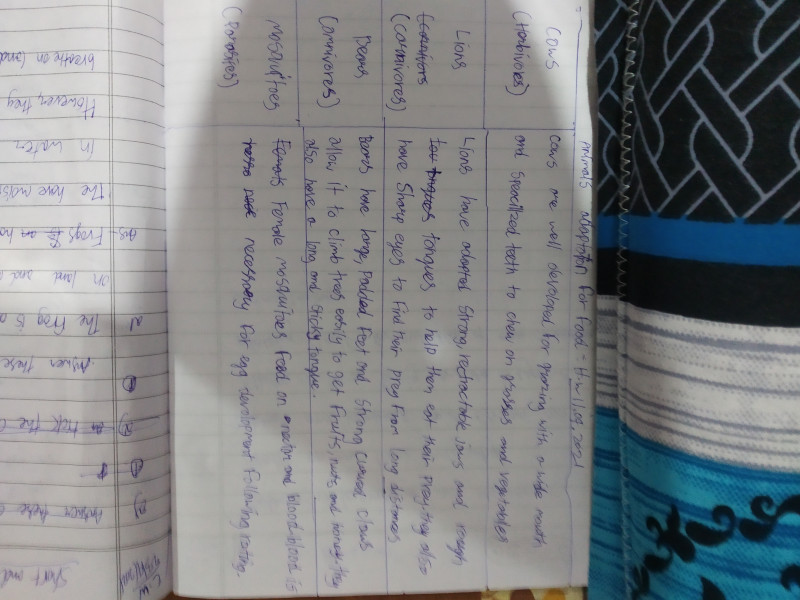 Animals adaptation for food - H.W
Cows
(Herbivores)
cows are well developed for grazing with a wide mouth
and specilized teeth to chew on grasses and vegetables
Lions
(carnivores)
Lions have adapted strong retractable jaws and rough
tongues to help them eat their prey. they also
have sharp eyes to find their prey from long distances
Bears
(omnivores)
Bears have large, padded feet and strong curved claws
allow it to climb trees easily to get fruits, nuts and honey. they
also have a long and sticky tongue.
mosquitoes
(Parasites)
Female mosquitoes feed on and blood. blood is
necessary for egg development following mating.
Short and
Answer these
2)
tick the
Answer these
2)
The frog is a
on land and
Ans Frogs
The have moist
in water
However, they
breathe on land